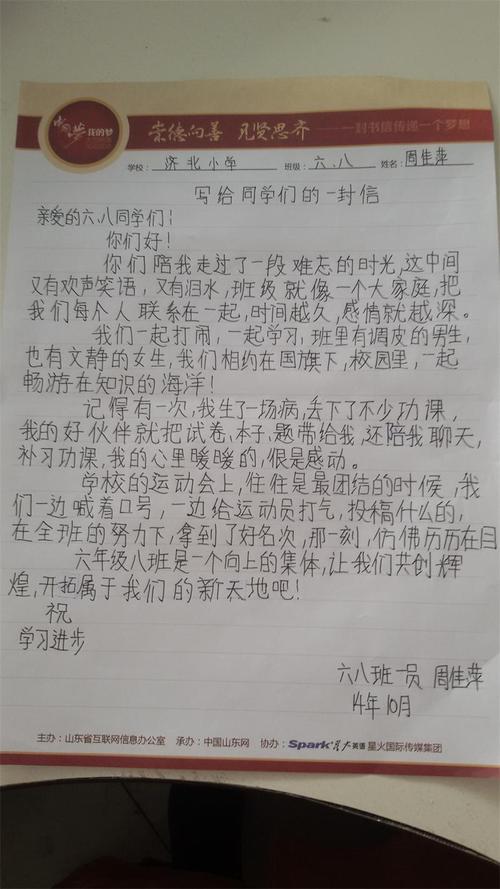 中国梦 我的梦
崇德向善 见贤思齐 ——一封书信传递一个梦想
学校: 济北小学 班级: 六、八 姓名: 周佳萍
写给同学们的一封信
亲爱的六、八同学们:
你们好!
你们陪我走过了一段难忘的时光,这中间
又有欢声笑语,又有泪水,班级就像一个大家庭,把
我们每个人联系在一起,时间越久,感情就越深。
我们一起打闹,一起学习,班里有调皮的男生,
也有文静的女生,我们相约在国旗下,校园里,一起
畅游在知识的海洋!
记得有一次,我生了一场病,丢下了不少功课,
我的好伙伴就把试卷、本子、题带给我,还陪我聊天,
补习功课,我的心里暖暖的,很是感动。
学校的运动会上,往往是最团结的时候,我
们一边喊着口号,一边给运动员打气,投稿什么的,
在全班的努力下,拿到了好名次,那一刻,仿佛历历在目
六年级八班是一个向上的集体,让我们共创辉
煌,开拓属于我们的新天地吧!
祝
学习进步
六八班一员 周佳萍
14年10月
主办:山东省互联网信息办公室 承办:中国山东网 协办:Spark 星火英语 星火国际传媒集团